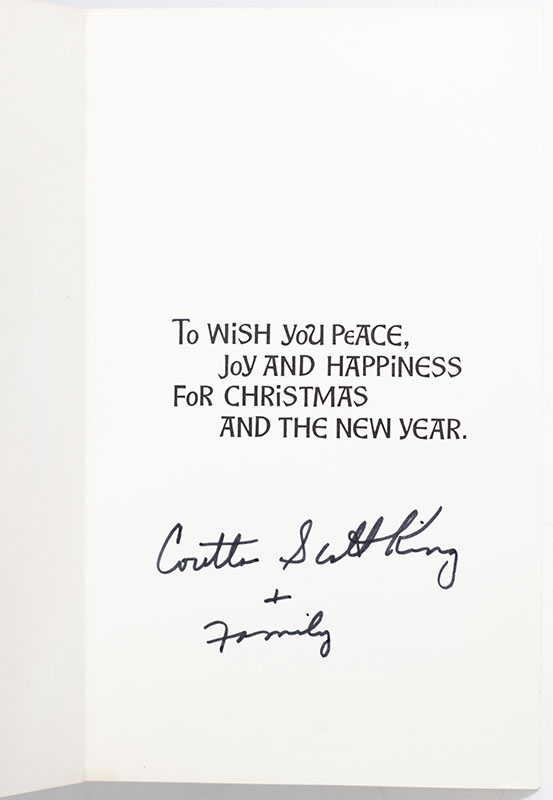 To wish you peace,
joy and happiness
for Christmas
and the New Year.
Coretta Scott King
+
Family